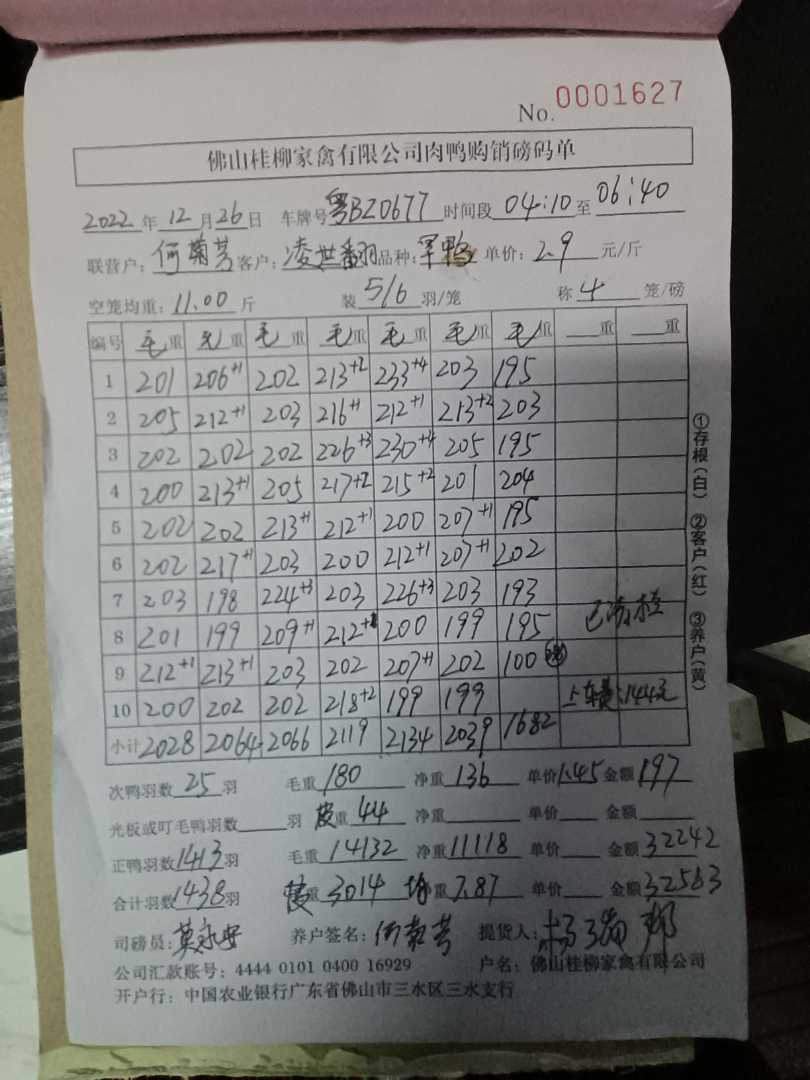 No. 0001627
佛山桂柳家禽有限公司肉鸭购销磅码单
2022 年 12 月 26 日 车牌号 粤BZ0677 时间段 04:10 至 06:40
联营户: 何菊芳 客户: 凌世翻羽 品种: 军鸭 单价: 2.9 元/斤
空笼均重: 11.00 斤 装 5/6 羽/笼 称 4 笼/磅
编号 毛重 毛重 毛重 毛重 毛重 毛重 毛重 重 重
1 201 206+1 202 213+2 233+4 203 195
2 205 212+1 203 216+1 212+1 213+2 203
3 202 202 202 226+3 230+4 205 195
4 200 213+1 205 217+2 215+2 201 204
5 202 202 213+1 212+1 200 207+1 195
6 202 217+1 203 200 212+1 207+1 202
7 203 198 224+3 203 226+3 203 193
8 201 199 209+1 212+1 200 199 195
9 212+1 213+1 203 202 207+1 202 100
10 200 202 202 218+2 199 199 上车费:144元
小计 2028 2064 2066 2119 2134 2039 1682
次鸭羽数 25 羽 毛重 180 净重 136 单价 1.45 金额 197
光板或叮毛鸭羽数 羽 皮重 44 净重 单价 金额
正鸭羽数 1413 羽 毛重 14132 净重 11118 单价 金额 32242
合计羽数 1438 羽 重 3014 均重 7.87 单价 金额 32583
司磅员: 莫永安 养户签名: 何菊芳 提货人:
公司汇款账号: 4444 0101 0400 16929 户名: 佛山桂柳家禽有限公司
开户行: 中国农业银行广东省佛山市三水区三水支行
①存根(白) ②客户(红) ③养户(黄)